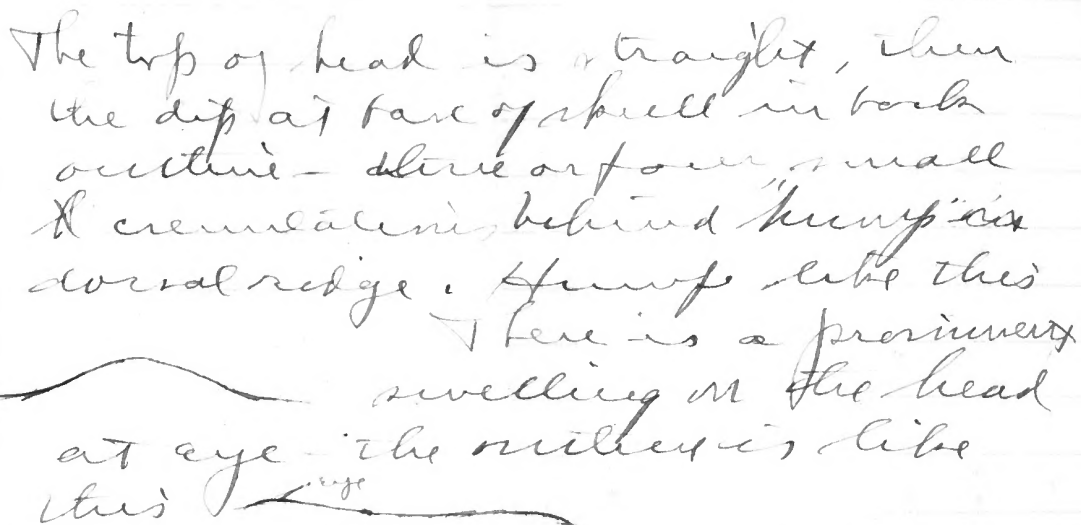 The top of head is straight, then
the dip at base of skull in back
outline - three or four small
crenulations behind "hump" on
dorsal ridge. Hump like this
There is a prominent
swelling on the head
at eye - the outline is like
this eye